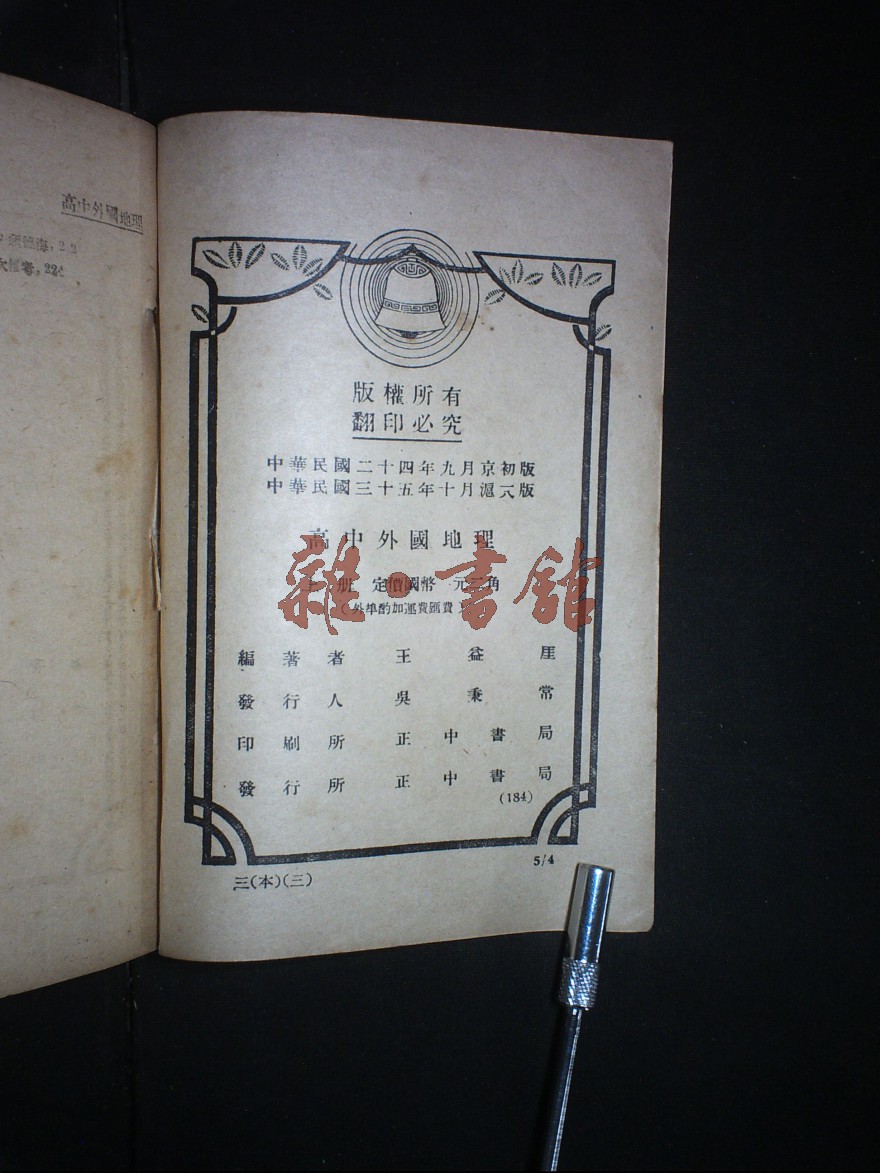 高中外國地理
版權所有
翻印必究
中華民國二十四年九月京初版
中華民國三十五年十月滬六版
高中外國地理
上册 定價國幣 元三角
(外埠酌加運費匯費)
編著者 王益厓
發行人 吳秉常
印刷所 正中書局
發行所 正中書局
(184)
5/4
三(本)(三)
雜·書館